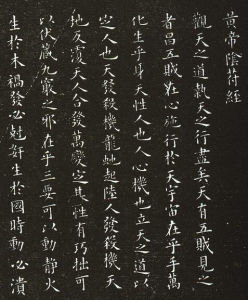 黃帝陰符經
觀天之道執天之行盡矣天有五賊見之
者昌五賊在心施行於天宇宙在乎手萬
化生乎身天性人也人心機也立天之道以
定人也天發殺機龍虵起陸人發殺機天
地反覆天人合發萬變定基性有巧拙可
以伏藏九竅之邪在乎三要可以動靜火
生於木禍發必尅姧生於國時動必潰